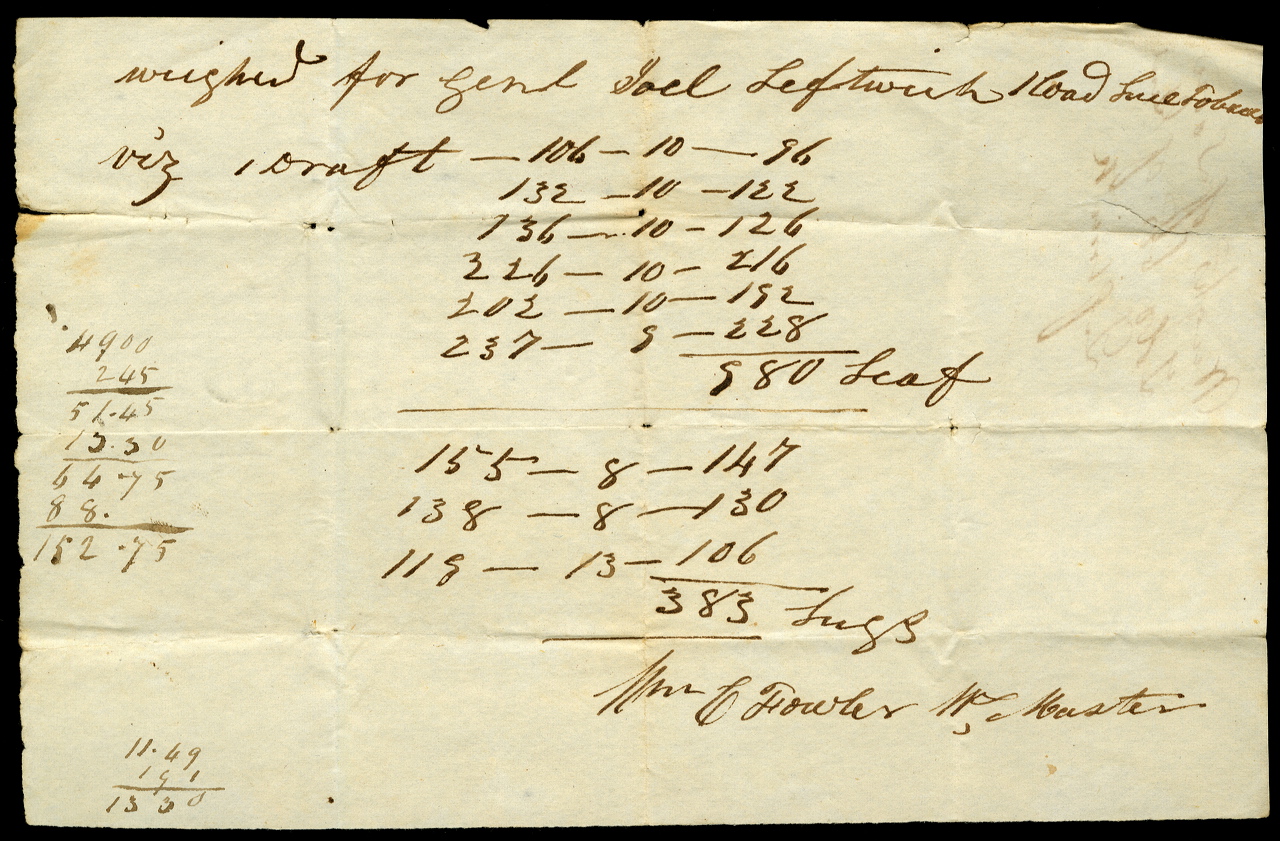 weighed for Genl Joel Leftwich 1 Load Luce Tobacco
viz 1 Draft — 106 — 10 — 96
132 — 10 — 122
136 — 10 — 126
226 — 10 — 216
202 — 10 — 192
237 — 9 — 228
980 Leaf
155 — 8 — 147
138 — 8 — 130
119 — 13 — 106
383 Lugs
Wm C Fowler W, Master
4900
245
51.45
13.30
64.75
88.
152.75
11.49
191
1330